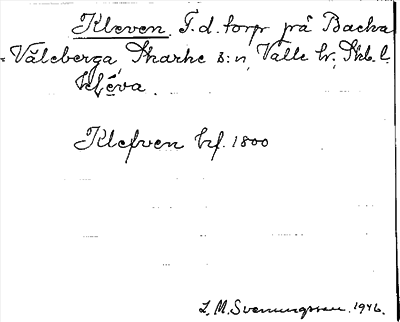 Kleven F.d. torp på Backa
Våleberga Skarke s:n, Valle hr, Skb. l.
kléva.
Klefven hf. 1800
L. M. Svenungsson, 1946.